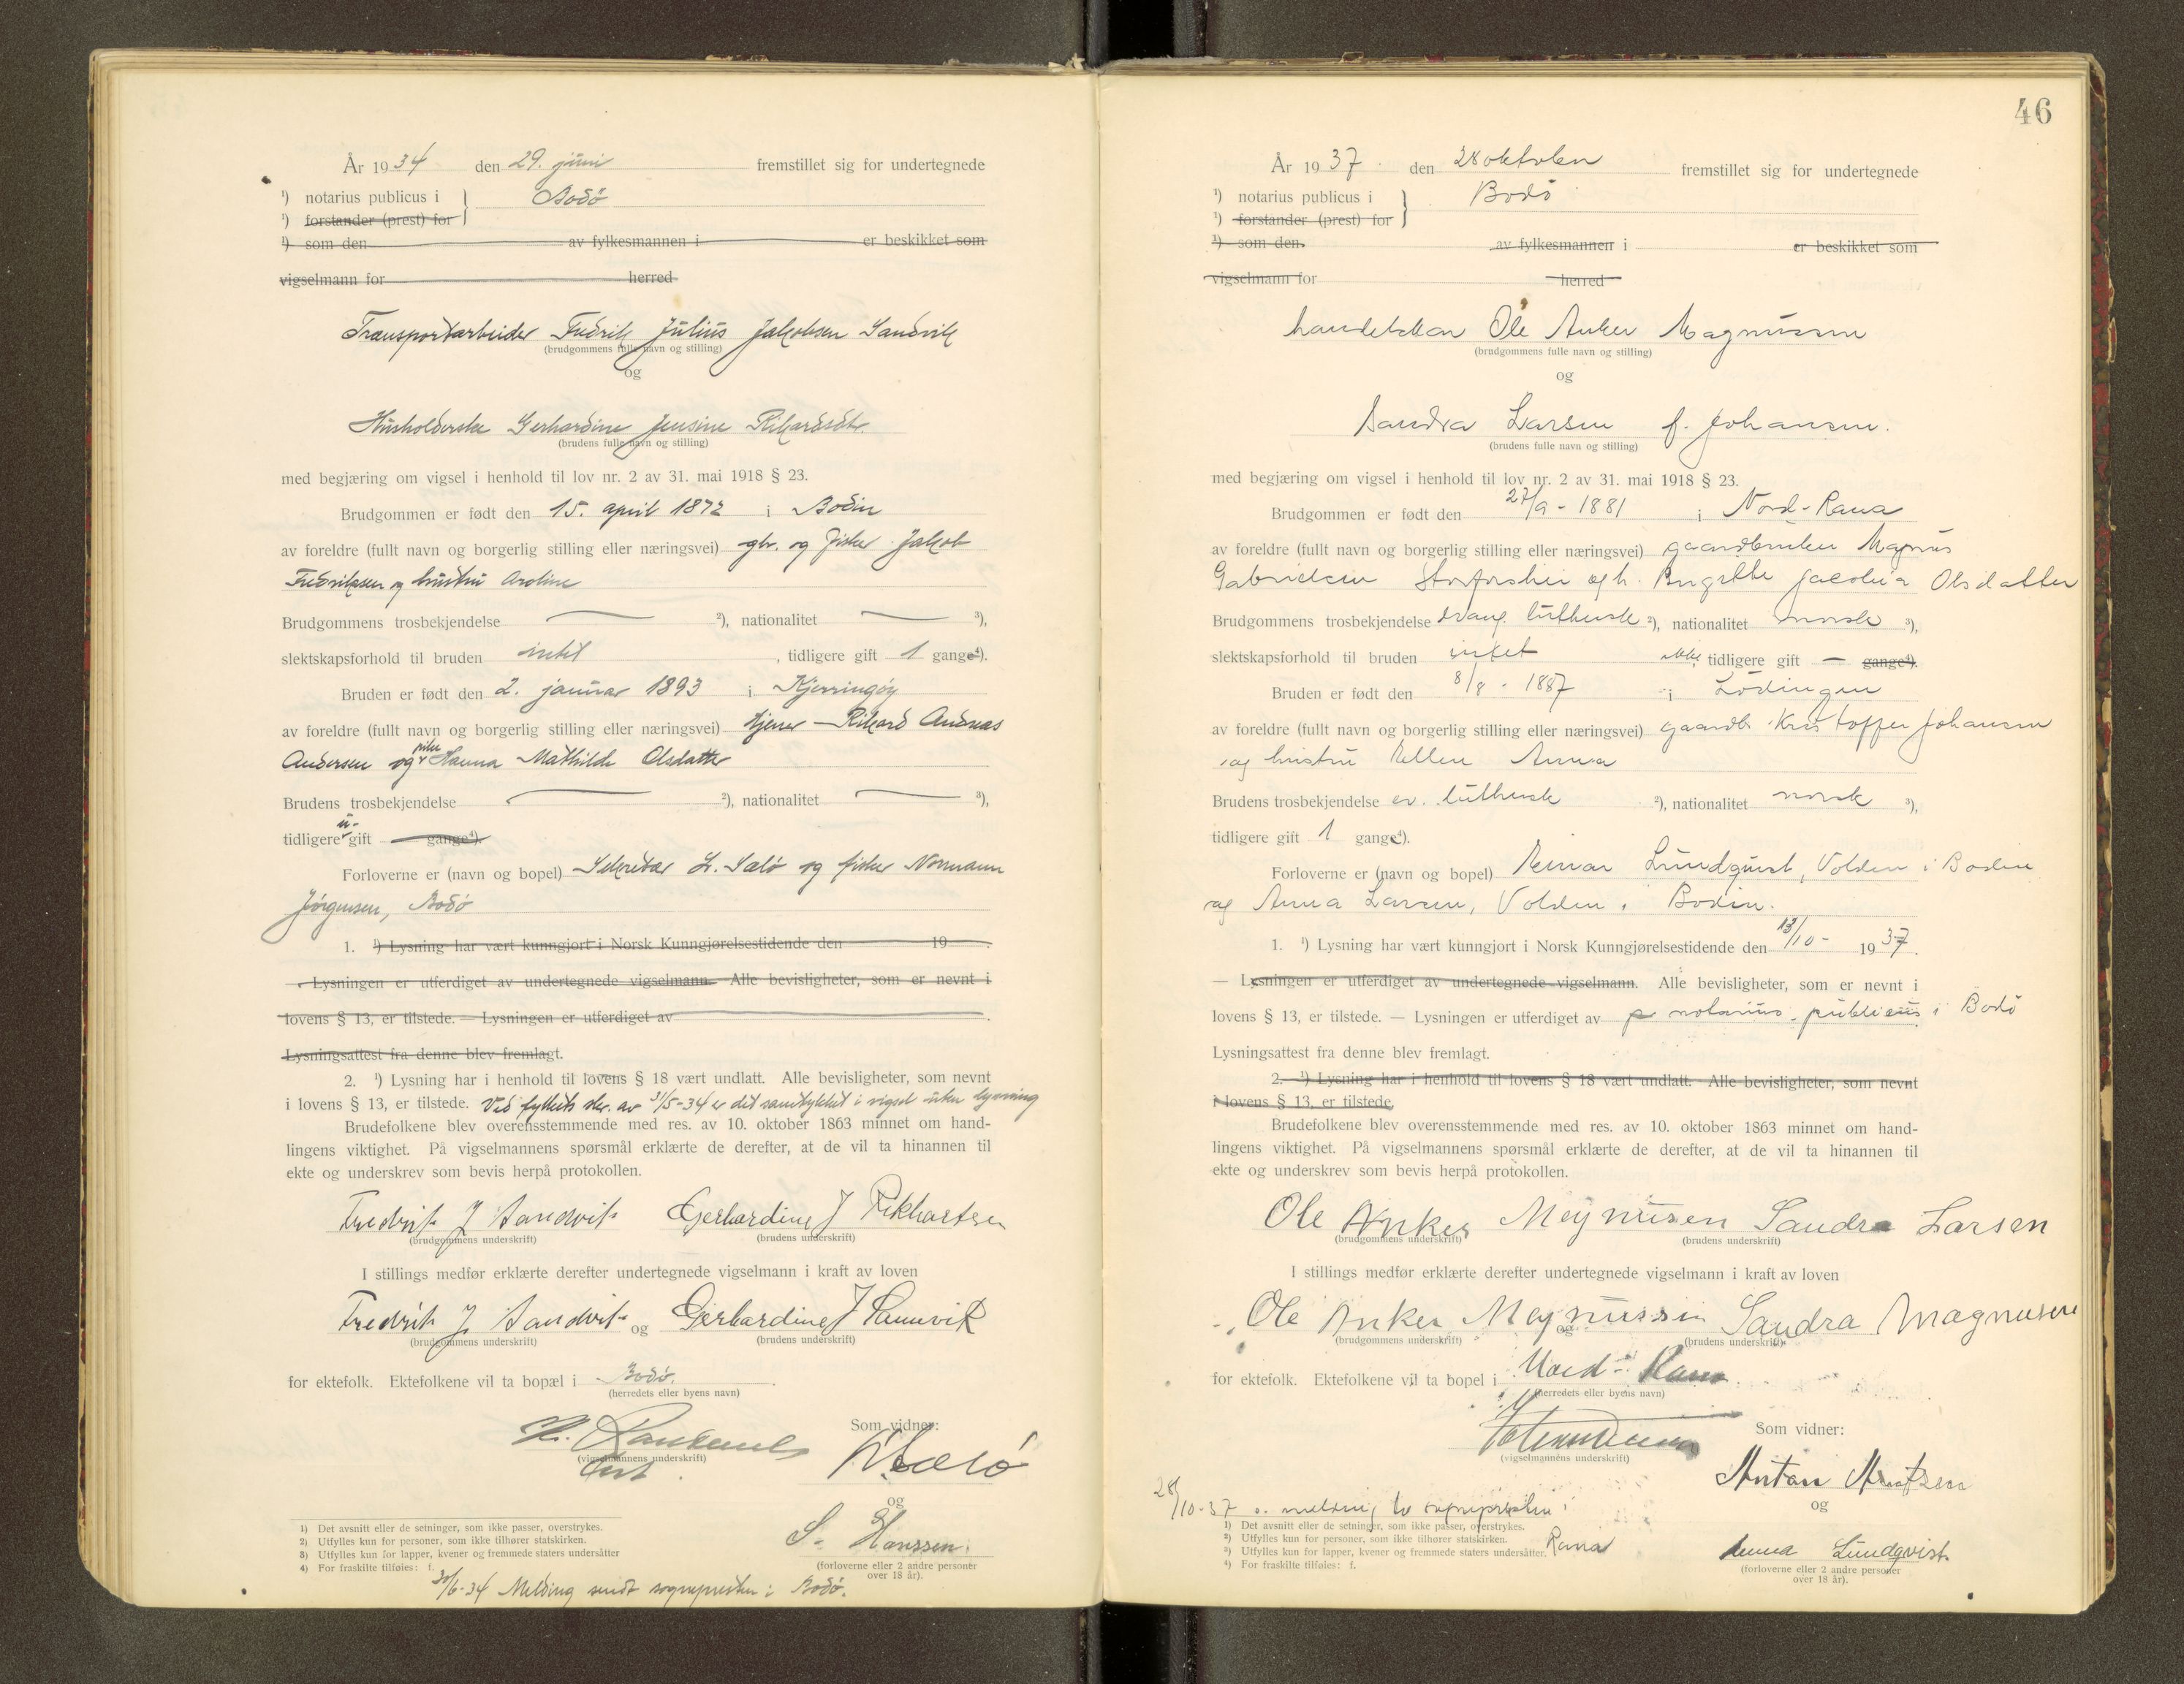 År 1934 den 29. juni fremstillet sig for undertegnede
¹) notarius publicus i } Bodö
¹) forstander (prest) for
¹) som den av fylkesmannen i er beskikket som
vigselmann for herred
Transportarbeider Fredrik Julius Jakobsen Sandvik
(brudgommens fulle navn og stilling)
og
Husholderske Gerhardine Jensine Rikardsdtr.
(brudens fulle navn og stilling)
med begjæring om vigsel i henhold til lov nr. 2 av 31. mai 1918 § 23.
Brudgommen er født den 15. april 1872 i Bodin
av foreldre (fullt navn og borgerlig stilling eller næringsvei) gbr. og fisker Jakob
Fredriksen og hustru Aroline
Brudgommens trosbekjendelse — ²), nationalitet — ³),
slektskapsforhold til bruden intet, tidligere gift 1 gange⁴).
Bruden er født den 2. januar 1893 i Kjerringöy
av foreldre (fullt navn og borgerlig stilling eller næringsvei) tjener Rikard Andreas
Andersen og pike Hanna Mathilde Olsdatter
Brudens trosbekjendelse — ²), nationalitet — ³),
tidligere u-gift — gange⁴).
Forloverne er (navn og bopel) Sekretær L. Salö og fisker Normann
Jörgensen, Bodö
1. ¹) Lysning har vært kunngjort i Norsk Kunngjørelsestidende den 19 .
— Lysningen er utferdiget av undertegnede vigselmann. Alle bevisligheter, som er nevnt i
lovens § 13, er tilstede. — Lysningen er utferdiget av .
Lysningsattest fra denne blev fremlagt.
2. ¹) Lysning har i henhold til lovens § 18 vært undlatt. Alle bevisligheter, som nevnt
i lovens § 13, er tilstede. Ved fylkets skr. av 31/5-34 er det samtykket i vigsel uten lysning
Brudefolkene blev overensstemmende med res. av 10. oktober 1863 minnet om hand-
lingens viktighet. På vigselmannens spørsmål erklærte de derefter, at de vil ta hinannen til
ekte og underskrev som bevis herpå protokollen.
Fredrik J Sandvik Gerhardine J Rikhartsen
(brudgommens underskrift) (brudens underskrift)
I stillings medfør erklærte derefter undertegnede vigselmann i kraft av loven
Fredrik J. Sandvik og Gerhardine J Sannvik
(brudgommens underskrift) (brudens underskrift)
for ektefolk. Ektefolkene vil ta bopæl i Bodö.
(herredets eller byens navn)
Som vidner:
(vigselmannens underskrift)
og
S. Hanssen.
(forloverne eller 2 andre personer
over 18 år).
1) Det avsnitt eller de setninger, som ikke passer, overstrykes.
2) Utfylles kun for personer, som ikke tilhører statskirken.
3) Utfylles kun for lapper, kvener og fremmede staters undersåtter
4) For fraskilte tilføies: f.
30/6-34 Melding sendt sognepresten i Bodö.
46
År 1937 den 28 oktober fremstillet sig for undertegnede
¹) notarius publicus i } Bodö
¹) forstander (prest) for
¹) som den av fylkesmannen i er beskikket som
vigselmann for herred
Ole Anker Magnussen
(brudgommens fulle navn og stilling)
og
Sandra Larsen f. Johansen.
(brudens fulle navn og stilling)
med begjæring om vigsel i henhold til lov nr. 2 av 31. mai 1918 § 23.
Brudgommen er født den 27/9 - 1881 i Nord-Rana
av foreldre (fullt navn og borgerlig stilling eller næringsvei) gaardbruker Magnus
Gabrielsen Storforshei og h. Birgitte Jacobia Olsdatter
Brudgommens trosbekjendelse evang. luthersk ²), nationalitet norsk ³),
slektskapsforhold til bruden intet ikke tidligere gift — gange⁴).
Bruden er født den 8/8 - 1887 i Lödingen
av foreldre (fullt navn og borgerlig stilling eller næringsvei) gaardb. Kristoffer Johansen
og hustru Ellen Anna
Brudens trosbekjendelse ev. luthersk ²), nationalitet norsk ³),
tidligere gift 1 gange⁴).
Forloverne er (navn og bopel) Reinar Lundquist, Volden i Bodin
og Anna Larsen, Volden i Bodin.
1. ¹) Lysning har vært kunngjort i Norsk Kunngjørelsestidende den 13/10 - 1937.
— Lysningen er utferdiget av undertegnede vigselmann. Alle bevisligheter, som er nevnt i
lovens § 13, er tilstede. — Lysningen er utferdiget av notarius publicus i Bodö
Lysningsattest fra denne blev fremlagt.
2. ¹) Lysning har i henhold til lovens § 18 vært undlatt. Alle bevisligheter, som nevnt
i lovens § 13, er tilstede.
Brudefolkene blev overensstemmende med res. av 10. oktober 1863 minnet om hand-
lingens viktighet. På vigselmannens spørsmål erklærte de derefter, at de vil ta hinannen til
ekte og underskrev som bevis herpå protokollen.
Ole Anker Magnusen Sandra Larsen
(brudgommens underskrift) (brudens underskrift)
I stillings medfør erklærte derefter undertegnede vigselmann i kraft av loven
Ole Anker Magnussen og Sandra Magnusen
(brudgommens underskrift) (brudens underskrift)
for ektefolk. Ektefolkene vil ta bopel i Nord-Rana
(herredets eller byens navn)
Som vidner:
(vigselmannens underskrift)
Anton Arntzen
og
28/10-37 s. melding to sognepresten i
Rana
Anna Lundqvist
(forloverne eller 2 andre personer
over 18 år).
1) Det avsnitt eller de setninger, som ikke passer, overstrykes.
2) Utfylles kun for personer, som ikke tilhører statskirken.
3) Utfylles kun for lapper, kvener og fremmede staters undersåtter.
4) For fraskilte tilføies: f.